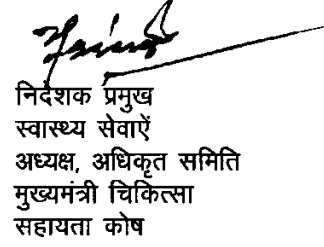 निदेशक प्रमुख
स्वास्थ्य सेवाऐं
अध्यक्ष, अधिकृत समिति
मुख्यमंत्री चिकित्सा
सहायता कोष